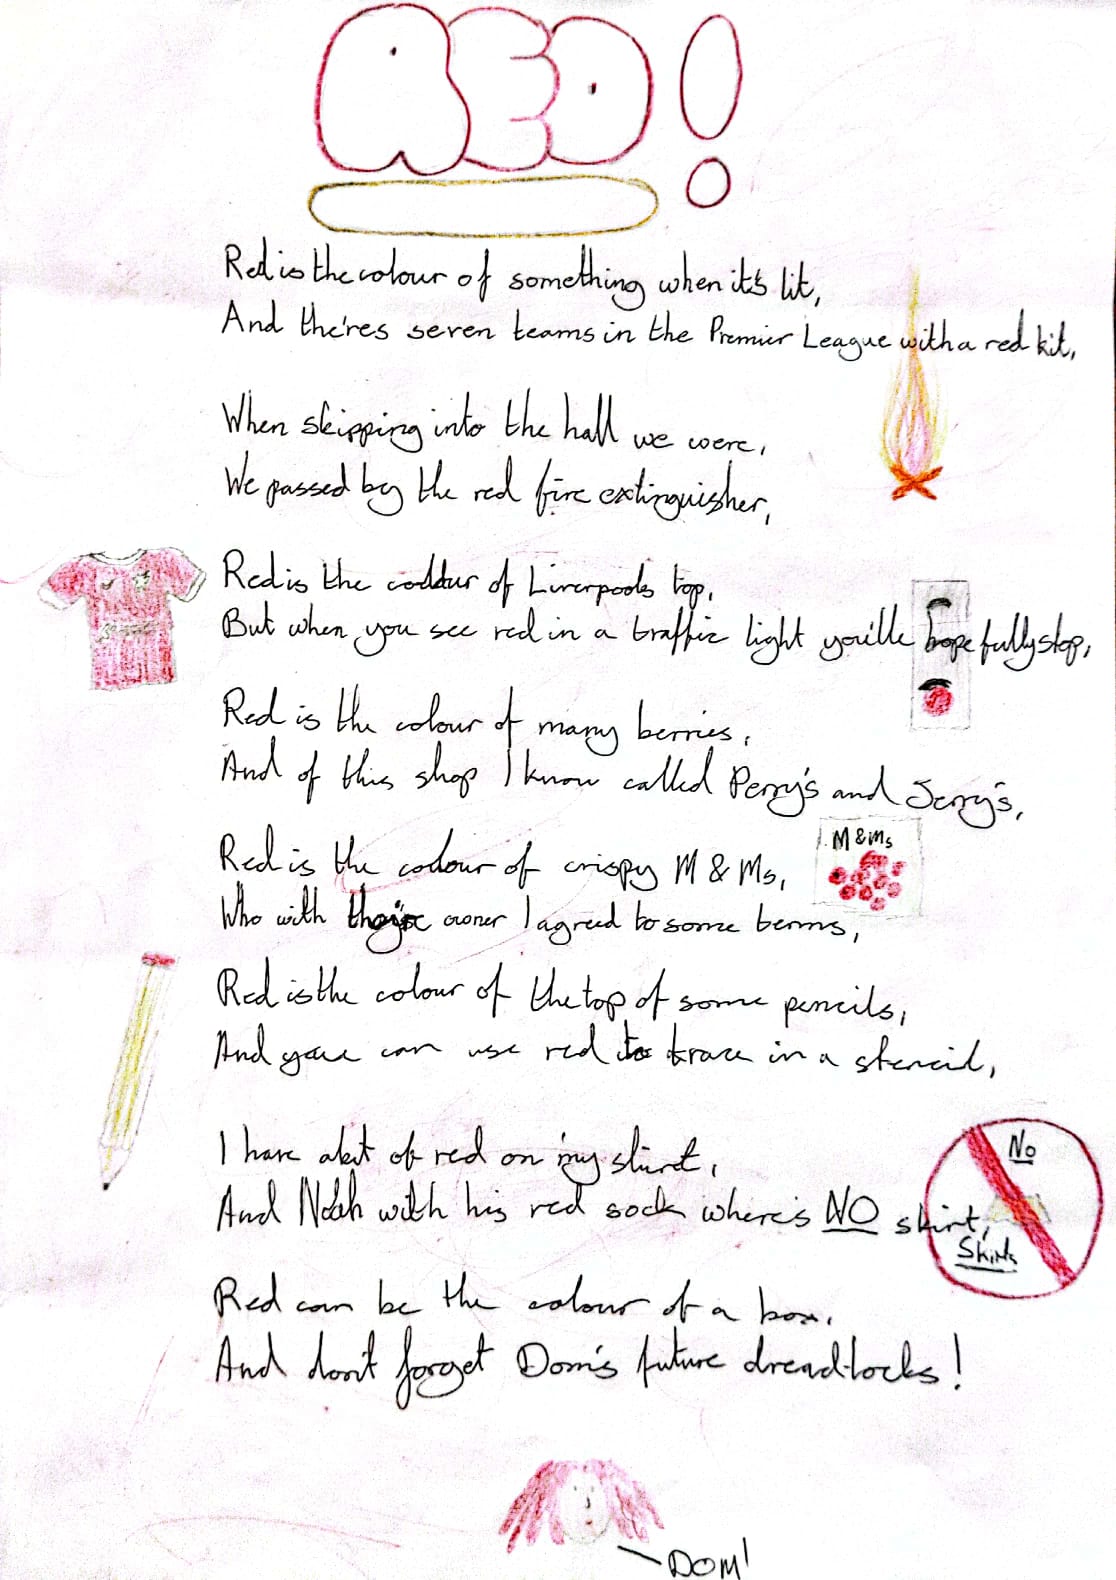 RED!
Red is the colour of something when it's lit,
And the'res seven teams in the Premier League with a red kit,
When skipping into the hall we were,
We passed by the red fire extinguisher,
Red is the colour of Liverpools top,
But when you see red in a traffic light you'lle hopefully stop,
Red is the colour of many berries,
And of this shop I know called Perry's and Jerry's,
M&Ms
Red is the colour of crispy M & Ms,
Who with their owner I agreed to some terms,
Red is the colour of the top of some pencils,
And you can use red to trace in a stencil,
I have abit of red on my shirt,
No
And Noah with his red sock where's NO skirt,
Skirts
Red can be the colour of a box,
And don't forget Dom's future dreadlocks!
DOM!